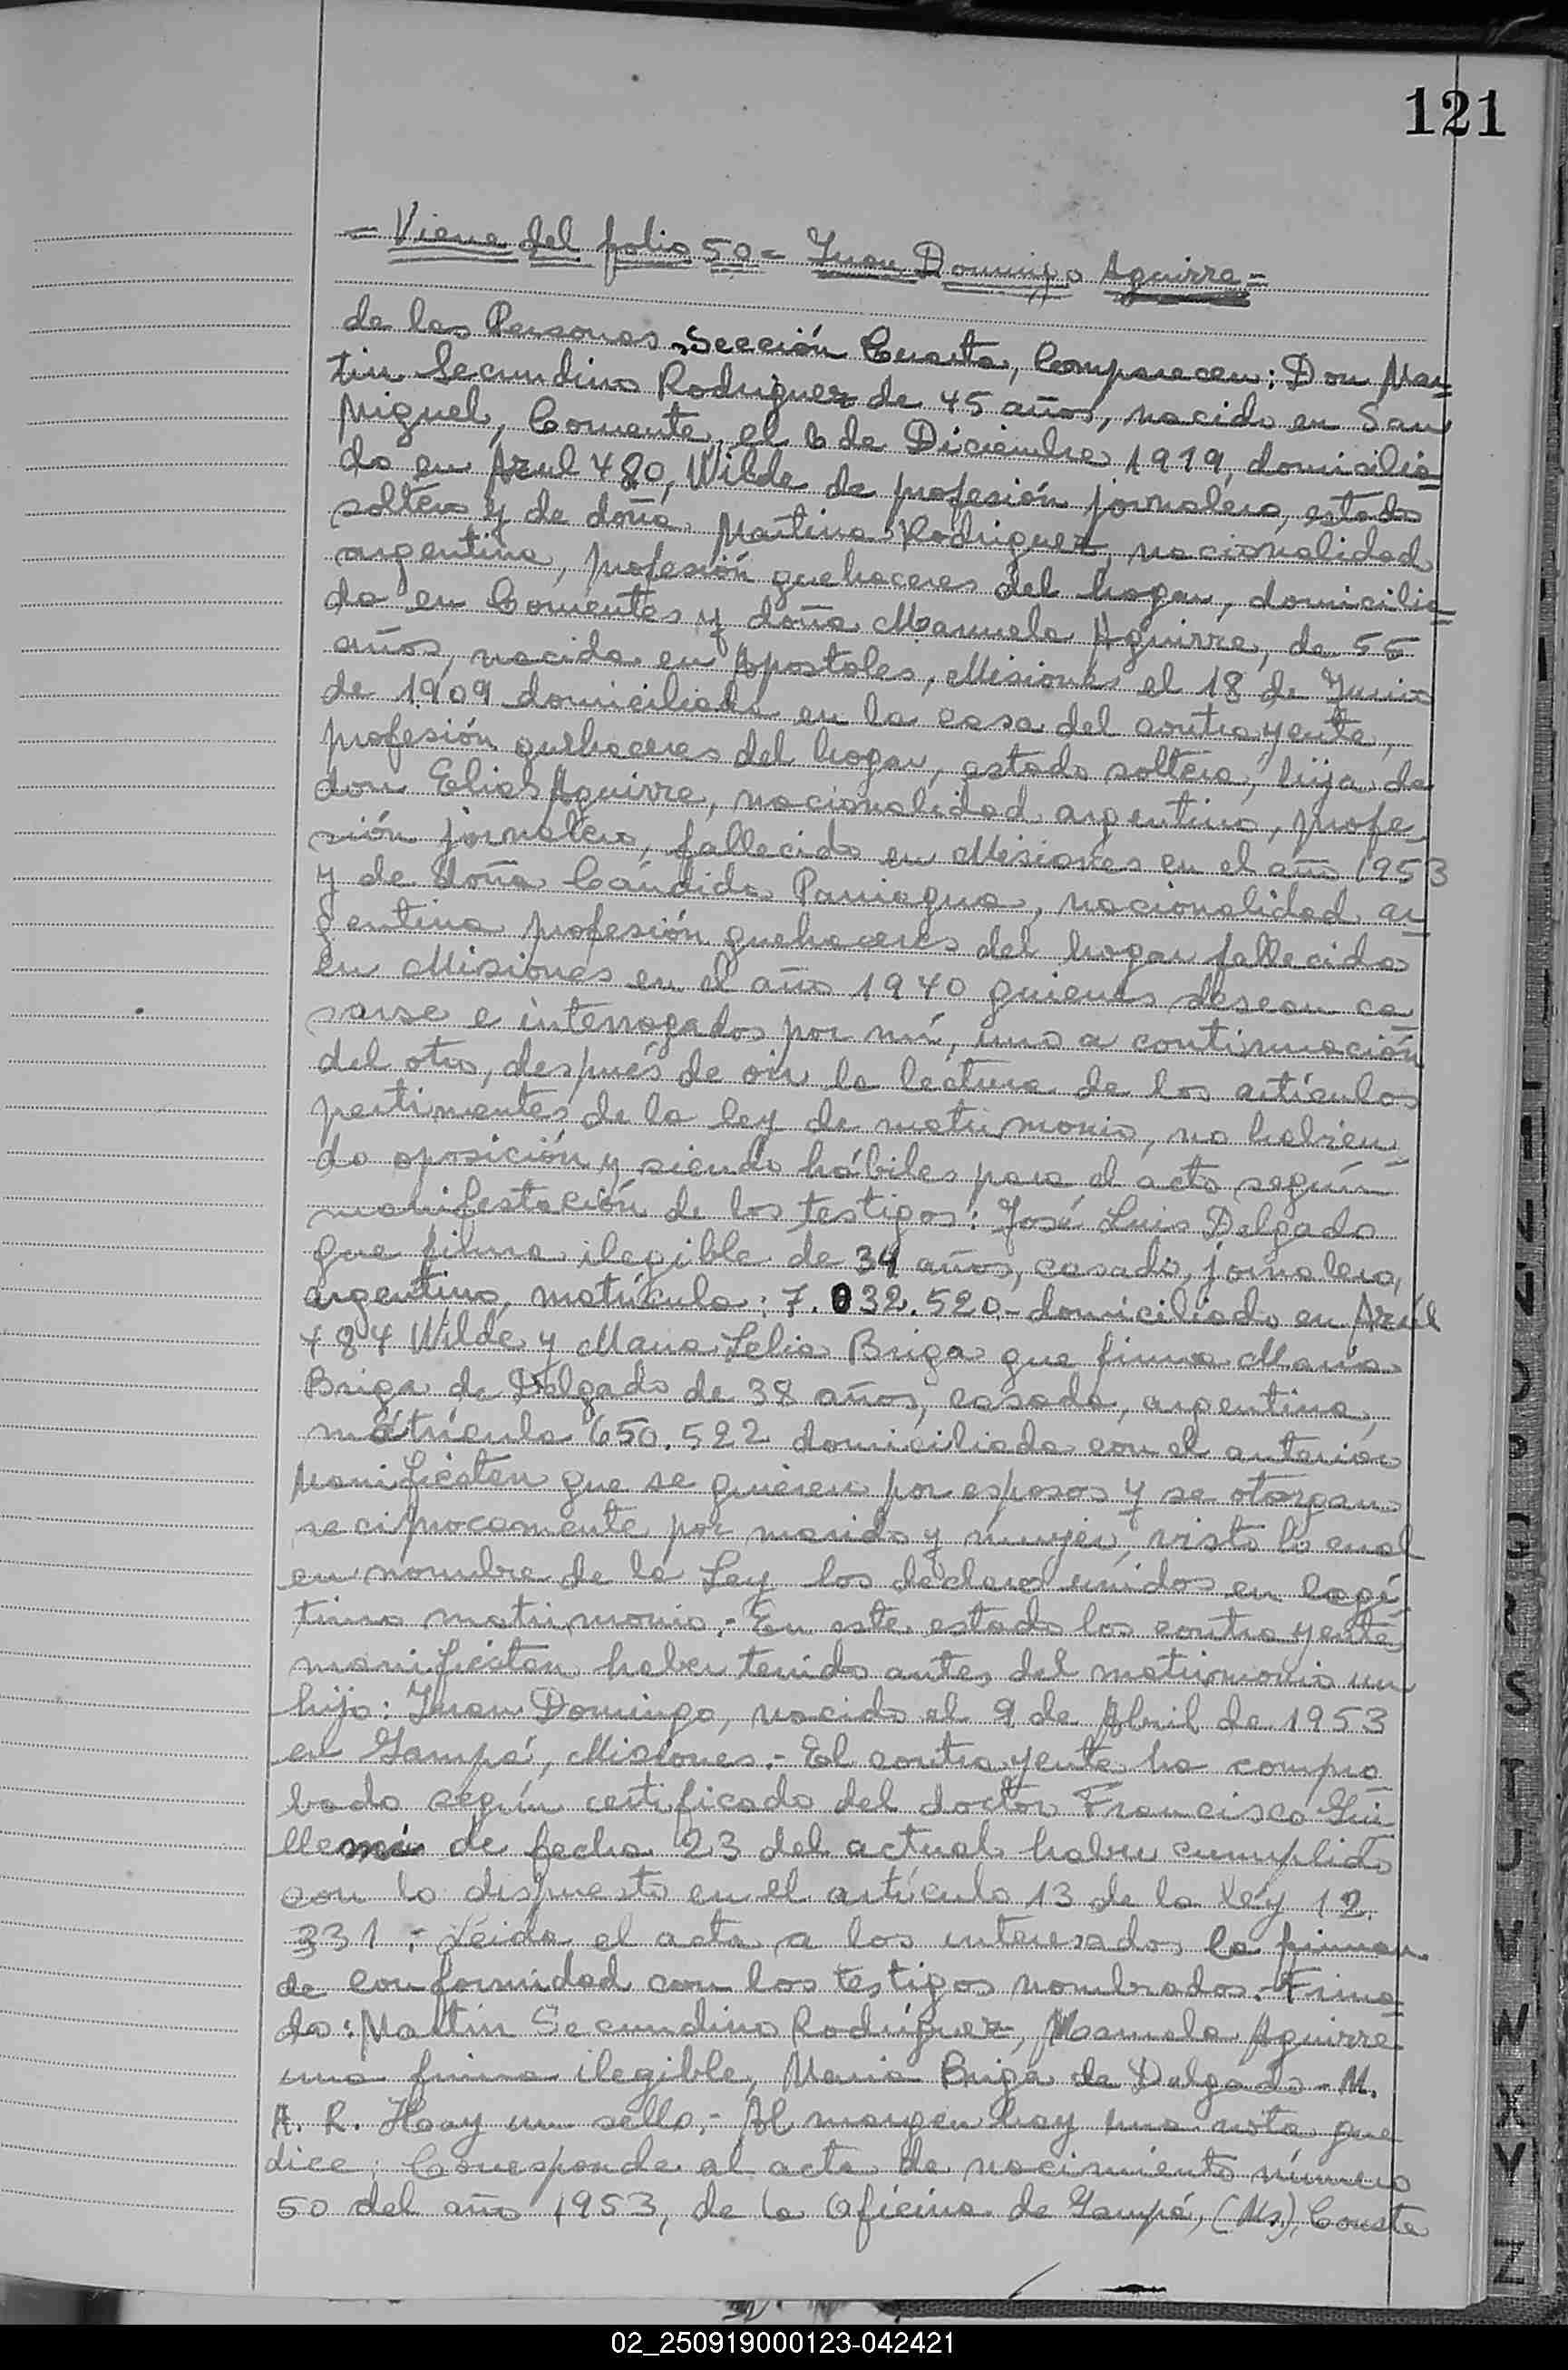 121
= Viene del folio 50 = Juan Domingo Aguirre =
de las Personas Sección Cuarta, Comparecen: Don Mar=
tin Secundino Rodriguez de 45 años, nacido en San
Miguel, Corrientes, el 6 de Diciembre 1919, domicilia=
do en Azul 480, Wilde de profesión jornalero, estado
soltero y de doña Martina Rodriguez, nacionalidad
argentina, profesión quehaceres del hogar, domicilia=
da en Corrientes y doña Manuela Aguirre, de 55
años, nacida en Apostoles, Misiones el 18 de Junio
de 1909 domiciliada en la casa del contrayente,
profesión quehaceres del hogar, estado soltera, hija de
don Elias Aguirre, nacionalidad argentino, profe
sión jornalero, fallecido en Misiones en el año 1953
y de doña Cándida Paniagua, nacionalidad ar
gentina profesión quehaceres del hogar fallecida
en Misiones en el año 1940 quienes desean ca
sarse e interrogados por mí, uno a continuación
del otro, después de oir la lectura de los artículos
pertinentes de la ley de matrimonio, no habien
do oposición y siendo hábiles para el acto según
manifestación de los testigos: José Luis Delgado
que firma ilegible de 34 años, casado, jornalero,
argentino, matrícula: 7.032.520.- domiciliado en Azul
484 Wilde y Maria Lelia Briga que firma María
Briga de Delgado de 38 años, casada, argentina,
matrícula 650.522 domiciliada con el anterior
Manifiestan que se quieren por esposos y se otorgan
recíprocamente por marido y mujer, visto lo cual
en nombre de la Ley los declaro unidos en legí
timo matrimonio.- En este estado los contrayentes
manifiestan haber tenido antes del matrimonio un
hijo: Juan Domingo, nacido el 9 de Abril de 1953
en Garupá, Misiones.- El contrayente ha compro
bado según certificado del doctor Francisco Gui
llemi de fecha 23 del actual haber cumplido
con lo dispuesto en el artículo 13 de la Ley 12.
331.- Leída el acta a los interesados la firman
de conformidad con los testigos nombrados. Firma=
do: Martin Secundino Rodríguez, Manuela Aguirre
una firma ilegible, Maria Briga de Delgado - M.
A. R. Hay un sello.- Al margen hay una nota que
dice: Corresponde al acta de nacimiento número
50 del año 1953, de la Oficina de Garupá, (Ms.), Conste
S
T
U
V
W
X
Y
Z
02_250919000123-042421